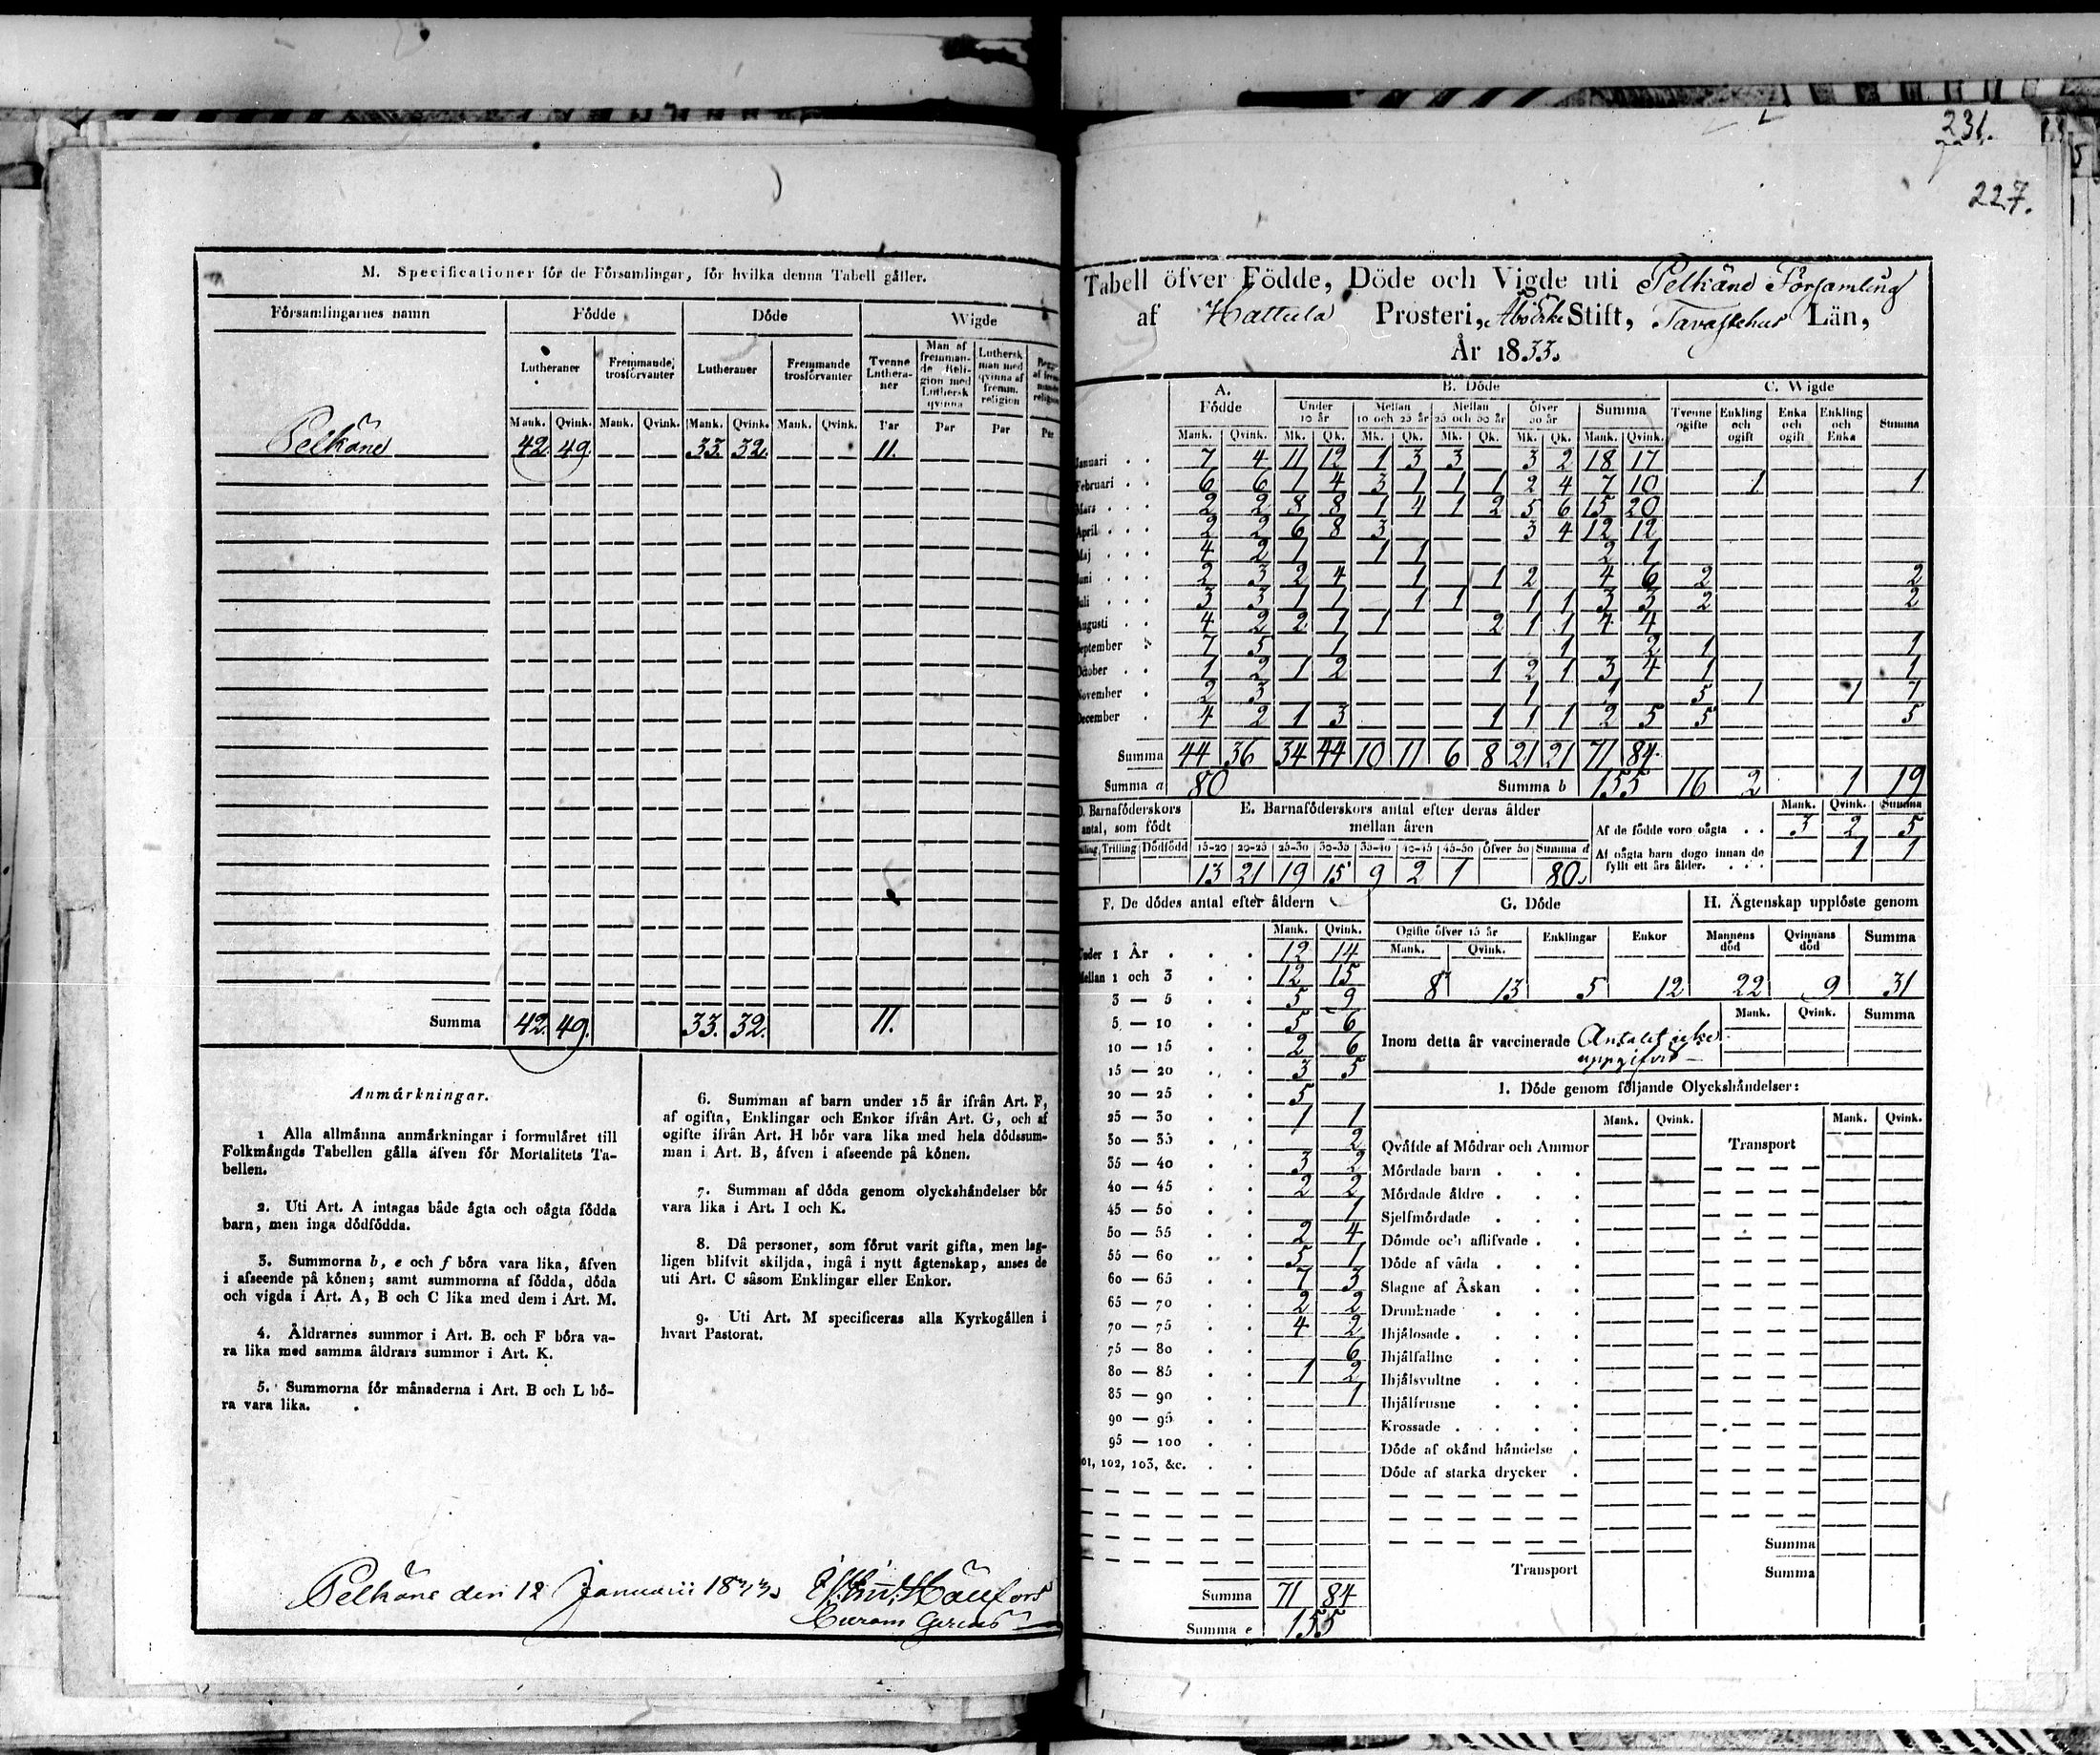 M. Specificationer för de Församlingar, för hvilka denna Tabell gäller.
Församlingarnes namn Födde Döde Wigde
Lutheraner Fremmande trosförvanter Lutheraner Fremmande trosförvanter Tvenne Lutheraner Man af fremmande Religion med Luthersk qvinna Luthersk man med qvinna af fremm. religion
Mank. Qvink. Mank. Qvink. Mank. Qvink. Mank. Qvink. Par Par Par Par
Pelkäne 42. 49. 33. 32. 11.
Summa 42. 49. 33. 32. 11.
Anmärkningar.
1 Alla allmänna anmärkningar i formuläret till
Folkmängds Tabellen gälla äfven för Mortalitets Ta-
bellen.
2. Uti Art. A intagas både ägta och oägta födda
barn, men inga dödfödda.
3. Summorna b, e och f böra vara lika, äfven
i afseende på könen; samt summorna af födda, döda
och vigda i Art. A, B och C lika med dem i Art. M.
4. Åldrarnes summor i Art. B. och F böra va-
ra lika med samma åldrars summor i Art. K.
5. Summorna för månaderna i Art. B och L bö-
ra vara lika.
6. Summan af barn under 15 år ifrån Art. F,
af ogifta, Enklingar och Enkor ifrån Art. G, och af
ogifte ifrån Art. H bör vara lika med hela dödssum-
man i Art. B, äfven i afseende på könen.
7. Summan af döda genom olyckshändelser bör
vara lika i Art. I och K.
8. Då personer, som förut varit gifta, men lag-
ligen blifvit skiljda, ingå i nytt ägtenskap, anses de
uti Art. C såsom Enklingar eller Enkor.
9. Uti Art. M specificeras alla Kyrkogällen i
hvart Pastorat.
Pelkäne den 12 Januarii 1833
231.
227.
Tabell öfver Födde, Döde och Vigde uti Pelkäne Församling
af Hattula Prosteri, Åbo Erke Stift, Tavastehus Län,
År 1833.
A. Födde B. Döde C. Wigde
Under 10 år Mellan 10 och 25 år Mellan 25 och 50 år Öfver 50 år Summa Tvenne ogifte Enkling och ogift Enka och ogift Enkling och Enka Summa
Mank. Qvink. Mk. Qk. Mk. Qk. Mk. Qk. Mk. Qk. Mank. Qvink.
Januari 7 4 11 12 1 3 3 3 2 18 17
Februari 6 6 1 4 3 1 1 1 2 4 7 10 1 1
Mars 2 2 8 8 1 4 1 2 5 6 15 20
April 2 2 6 8 3 3 4 12 12
Maj 4 2 1 1 1 2 1
Juni 2 3 2 4 1 1 2 4 6 2 2
Juli 3 3 1 1 1 1 1 1 3 3 2 2
Augusti 4 2 2 1 1 2 1 1 4 4
September 7 5 1 1 2 1 1
October 1 2 1 2 1 2 1 3 4 1 1
November 2 3 1 1 5 1 1 7
December 4 2 1 3 1 1 1 2 5 5 5
Summa 44 36 34 44 10 11 6 8 21 21 71 84
Summa a 80 Summa b 155 16 2 1 19
D. Barnaföderskors antal, som födt
Trilling Dödfödd
E. Barnaföderskors antal efter deras ålder
mellan åren
15-20 20-25 25-30 30-35 35-40 40-45 45-50 Öfver 50 Summa d
13 21 19 15 9 2 1 80
Mank. Qvink. Summa
Af de födde voro oägta 3 2 5
Af oägta barn dogo innan de
fyllt ett års ålder. 1 1
F. De dödes antal efter åldern
Mank. Qvink.
Under 1 År 12 14
Mellan 1 och 3 12 15
3 — 5 5 9
5 — 10 5 6
10 — 15 2 6
15 — 20 3 5
20 — 25 5
25 — 30 1 1
30 — 35 2
35 — 40 3 2
40 — 45 2 2
45 — 50 1
50 — 55 2 4
55 — 60 5 1
60 — 65 7 3
65 — 70 2 2
70 — 75 4 2
75 — 80 6
80 — 85 1 2
85 — 90 1
90 — 95
95 — 100
101, 102, 103, &c.
Summa 71 84
Summa e 155
G. Döde
Ogifte öfver 15 år Enklingar Enkor
Mank. Qvink.
8 13 5 12
H. Ägtenskap upplöste genom
Mannens död Qvinnans död Summa
22 9 31
Mank. Qvink. Summa
Inom detta år vaccinerade Antalet icke
uppgifvit
I. Döde genom följande Olyckshändelser:
Mank. Qvink. Mank. Qvink.
Qväfde af Mödrar och Ammor Transport
Mördade barn
Mördade äldre
Sjelfmördade
Dömde och aflifvade
Döde af våda
Slagne af Åskan
Drunknade
Ihjälosade
Ihjälfallne
Ihjälsvultne
Ihjälfrusne
Krossade
Döde af okänd händelse
Döde af starka drycker
Summa
Transport Summa